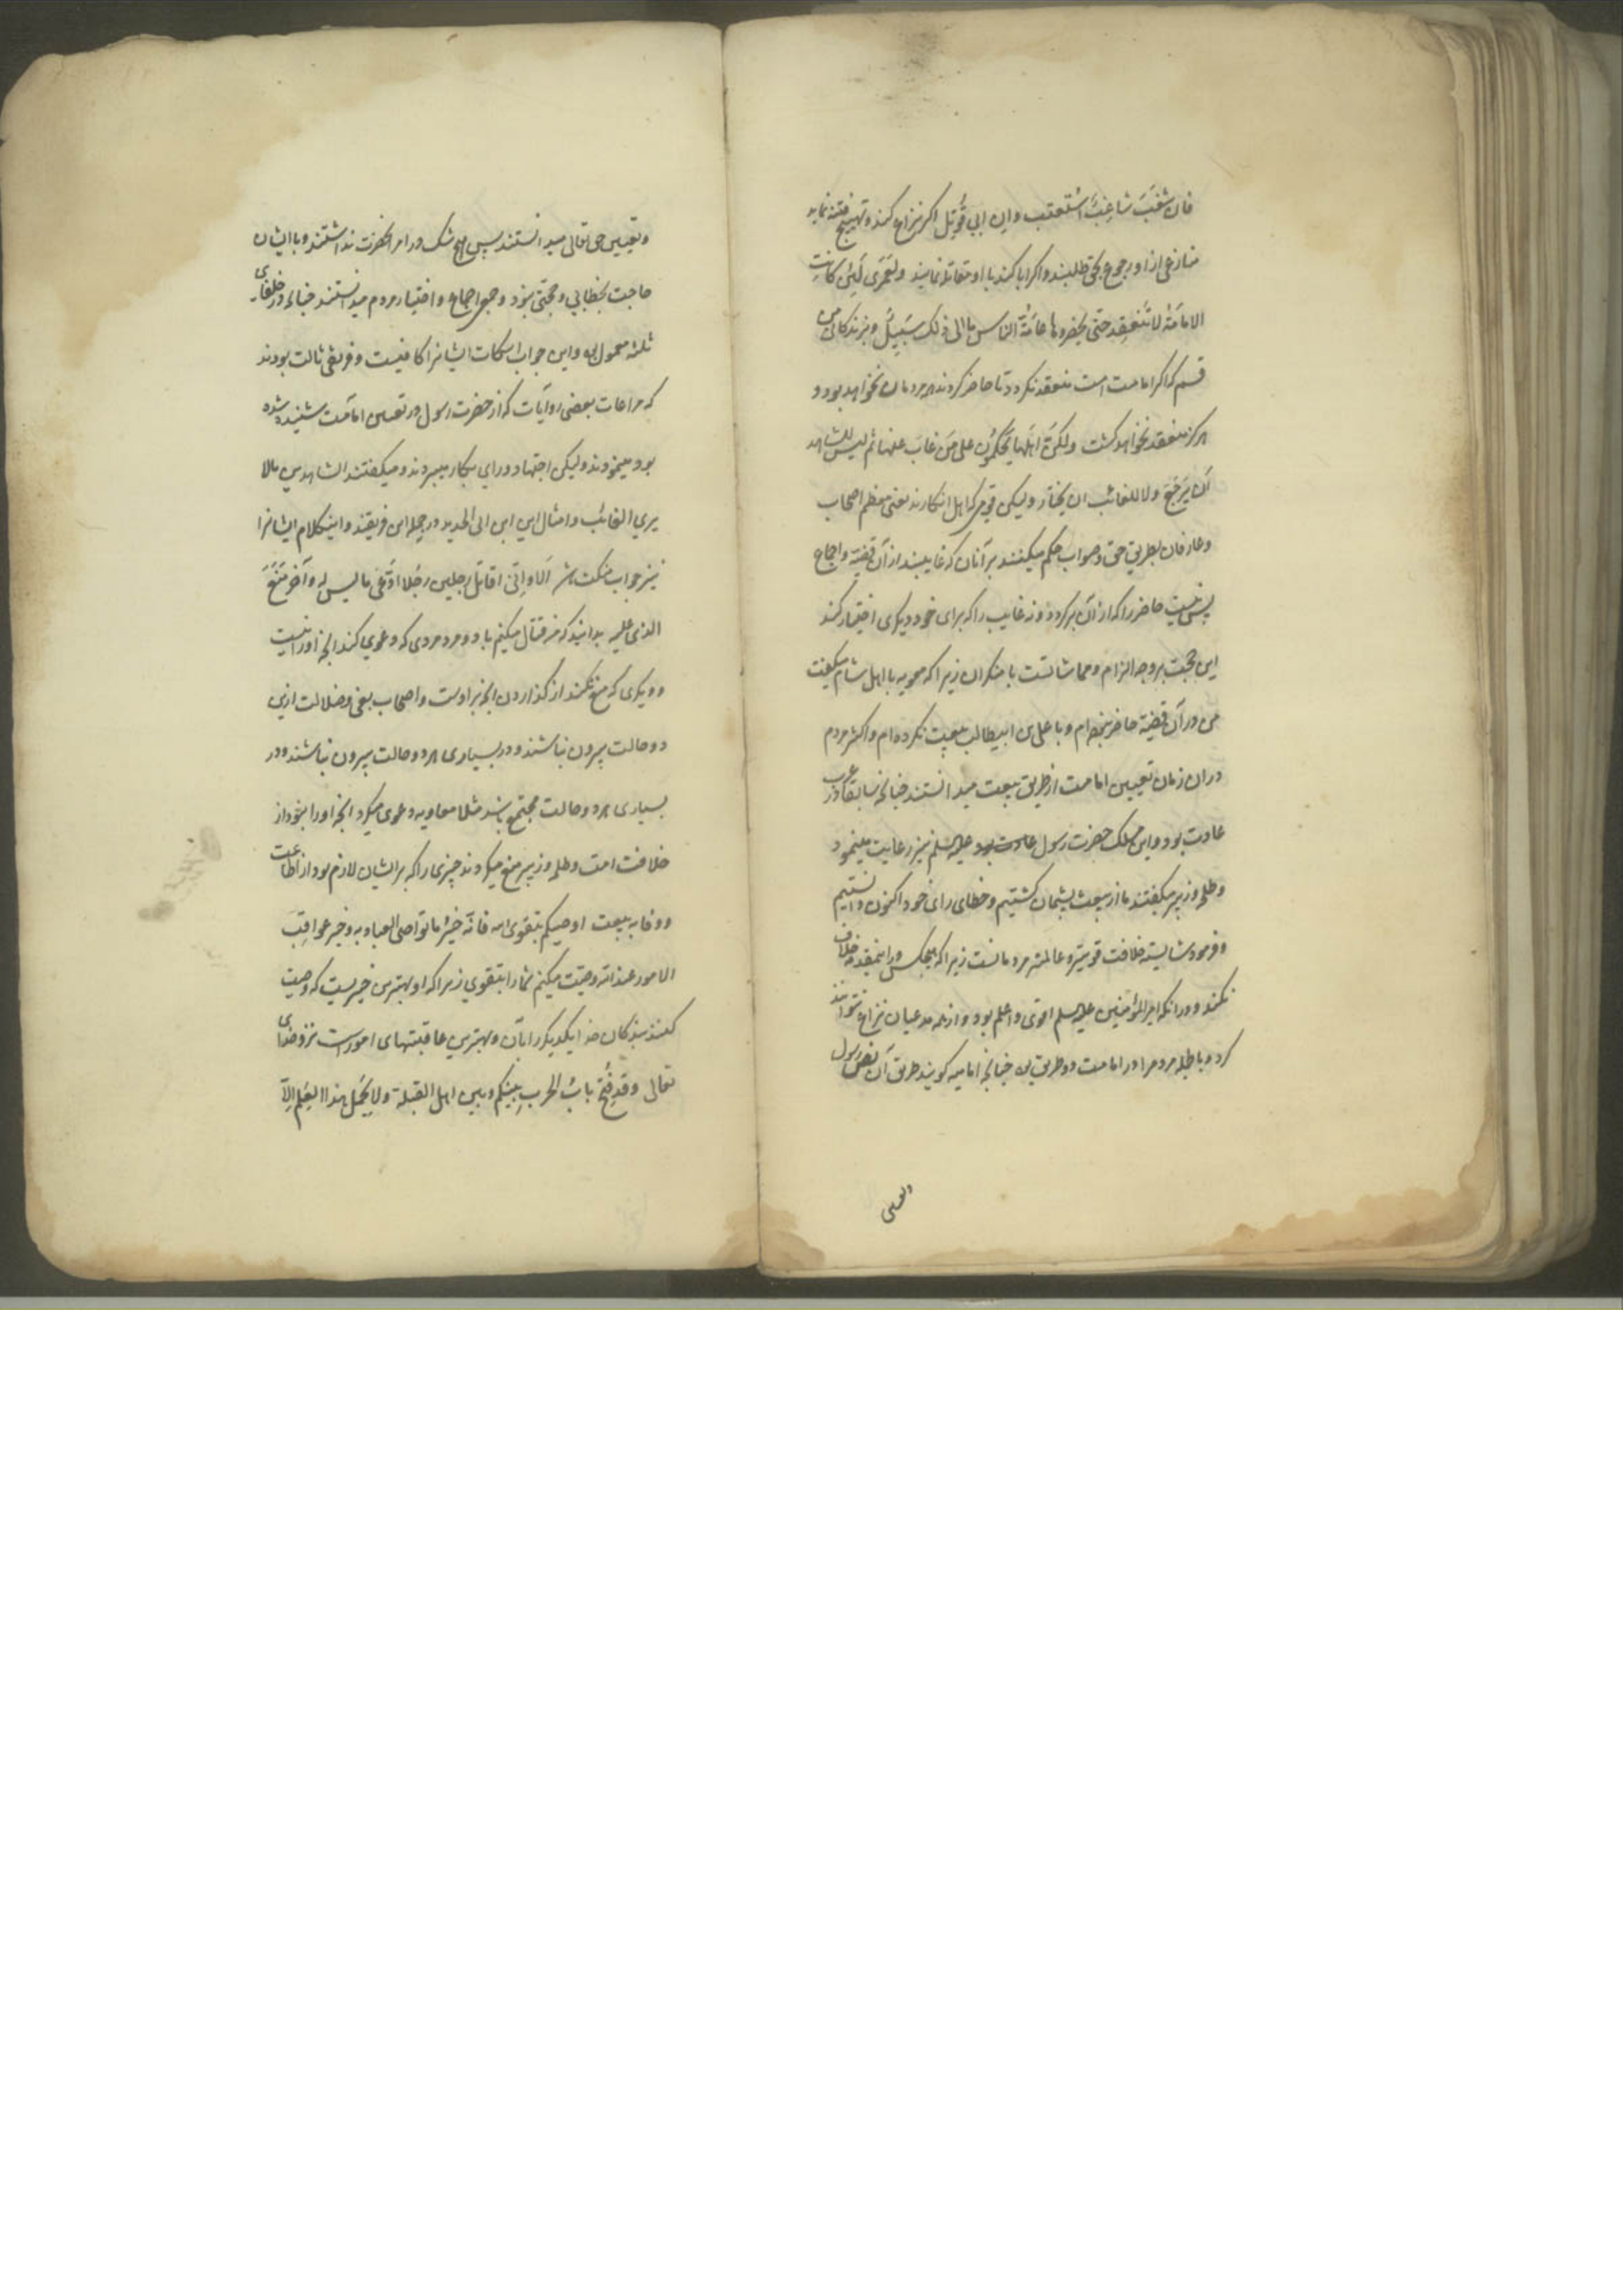 فان شَغَبَ شاغِبٌ اُستُعتِب وان ابی قُوتِل اکر نزاع کند و تهییج فتنه نماید
منازعی ازاو رجوع بحق طلبند واکر ابا کند با او مقاتله نمایند ولَعَمری لَئِن کانتِ
الامامَةُ لا تَنعَقِد حتّی یحضرها عامَّةُ الناس ما الی ذلک سَبیلٌ وبزندکانی من
قسم که اکر امامت امت منعقد نکردد تا حاضر کردند همه مردمان نخواهد بود و
هرکز منعقد نخواهد کشت ولکنَّ اهلَها یَحکُمُون علی مَن غابَ عنها ثم لیس للشاهد
اَن یَرجَعَ ولا للغائب ان یختار ولیکن قومی که اهل انکارند یعنی معظم اصحاب
وعارفان بطریق حق وصواب حکم میکنند بر آنان که غایبند از آن قضیّه واجماع
پس نیست حاضر را که از آن برکردد ونه غایب را که برای خود دیکری اختیار کند
این حجت بر وجه الزام ومماشاتست با منکران زیرا که معویه با اهل شام میکفت
من در آن قضیّه حاضر نبوده‌ام وبا علی بن ابیطالب بیعت نکرده‌ام واکثر مردم
دران زمان تعیین امامت از طریق بیعت میدانستند چنانچه سابقا در عرب
عادت بود واین مسلک حضرت رسول عادت بود علیه السلم نیز رعایت مینمود
وطلحه وزبیر میکفتند ما از بیعت پشیمان کشتیم وخطای رای خود اکنون دانستیم
وفرمود شایسته خلافت قویترو عالمتر مردمانست زیرا که هیچکس در این مقدمه خلاف
نکند ودر انکه امیرالمؤمنین علیه السلم اقوی واعلم بود وازهمه مدعیان نزاع نتوانند
کرد وبالجمله مردم را در امامت دو طریق بود چنانچه امامیه کویند طریق آن نصّ رسول
وتعیین
وتعیین حق تعالی میدانستند پس هیچ شک در امر انحضرت نداشتند وبا ایشان
حاجت بخطابی وحجتی نبود وجمعی اجماع واختیار مردم میدانستند چنانچه در خلفای
ثلثه معمول بود واین جواب اسکات ایشانرا کافیست وفریقی ثالث بودند
که مراعات بعضی روایات که از حضرت رسول در تعیین امامت شنیده شده
بود مینمودند ولیکن اجتهاد ورای بکار میبردند ومیکفتند الشاهد یری مالا
یری الغائب وامثال این ابن ابی الحدید در جمله این فریقند واینکلام ایشانرا
نیز جواب مسکت است اَلا واِنّی اقاتل رجلین رجُلا ادَّعی ما لیس له وآخر مَنَعَ
الذی علیه بدانید که من قتال میکنم با دو مرد مردی که دعوی کند انچه او را نیست
ودیکری که منع کند از کذاردن انچه بر اوست واصحاب بغی وضلالت ازین
دو حالت بیرون نباشند ودر بسیاری هر دو حالت بیرون نباشند ودر
بسیاری هر دو حالت مجتمع باشد مثلا معاویه دعوی میکرد انچه او را نبود از
خلافت امت وطلحه وزبیر منع میکردند چیزی را که بر ایشان لازم بود از اطاعت
ووفا به بیعت اوصیکم بتقوی الله فانّه خیرُ ما تواصی العباد به وخیر عواقِبَ
الامور عند الله وصیّت میکنم شما را بتقوی زیرا که او بهترین چیزیست که وصیت
کنند بندکان خدا یکدیکر را بآن وبهترین عاقبتهای امورست نزد خدای
تعالی وقد فُتِحَ بابُ الحربِ بینکم وبین اهل القبلة ولا یَحْمِل هذا العَلَم اِلّا